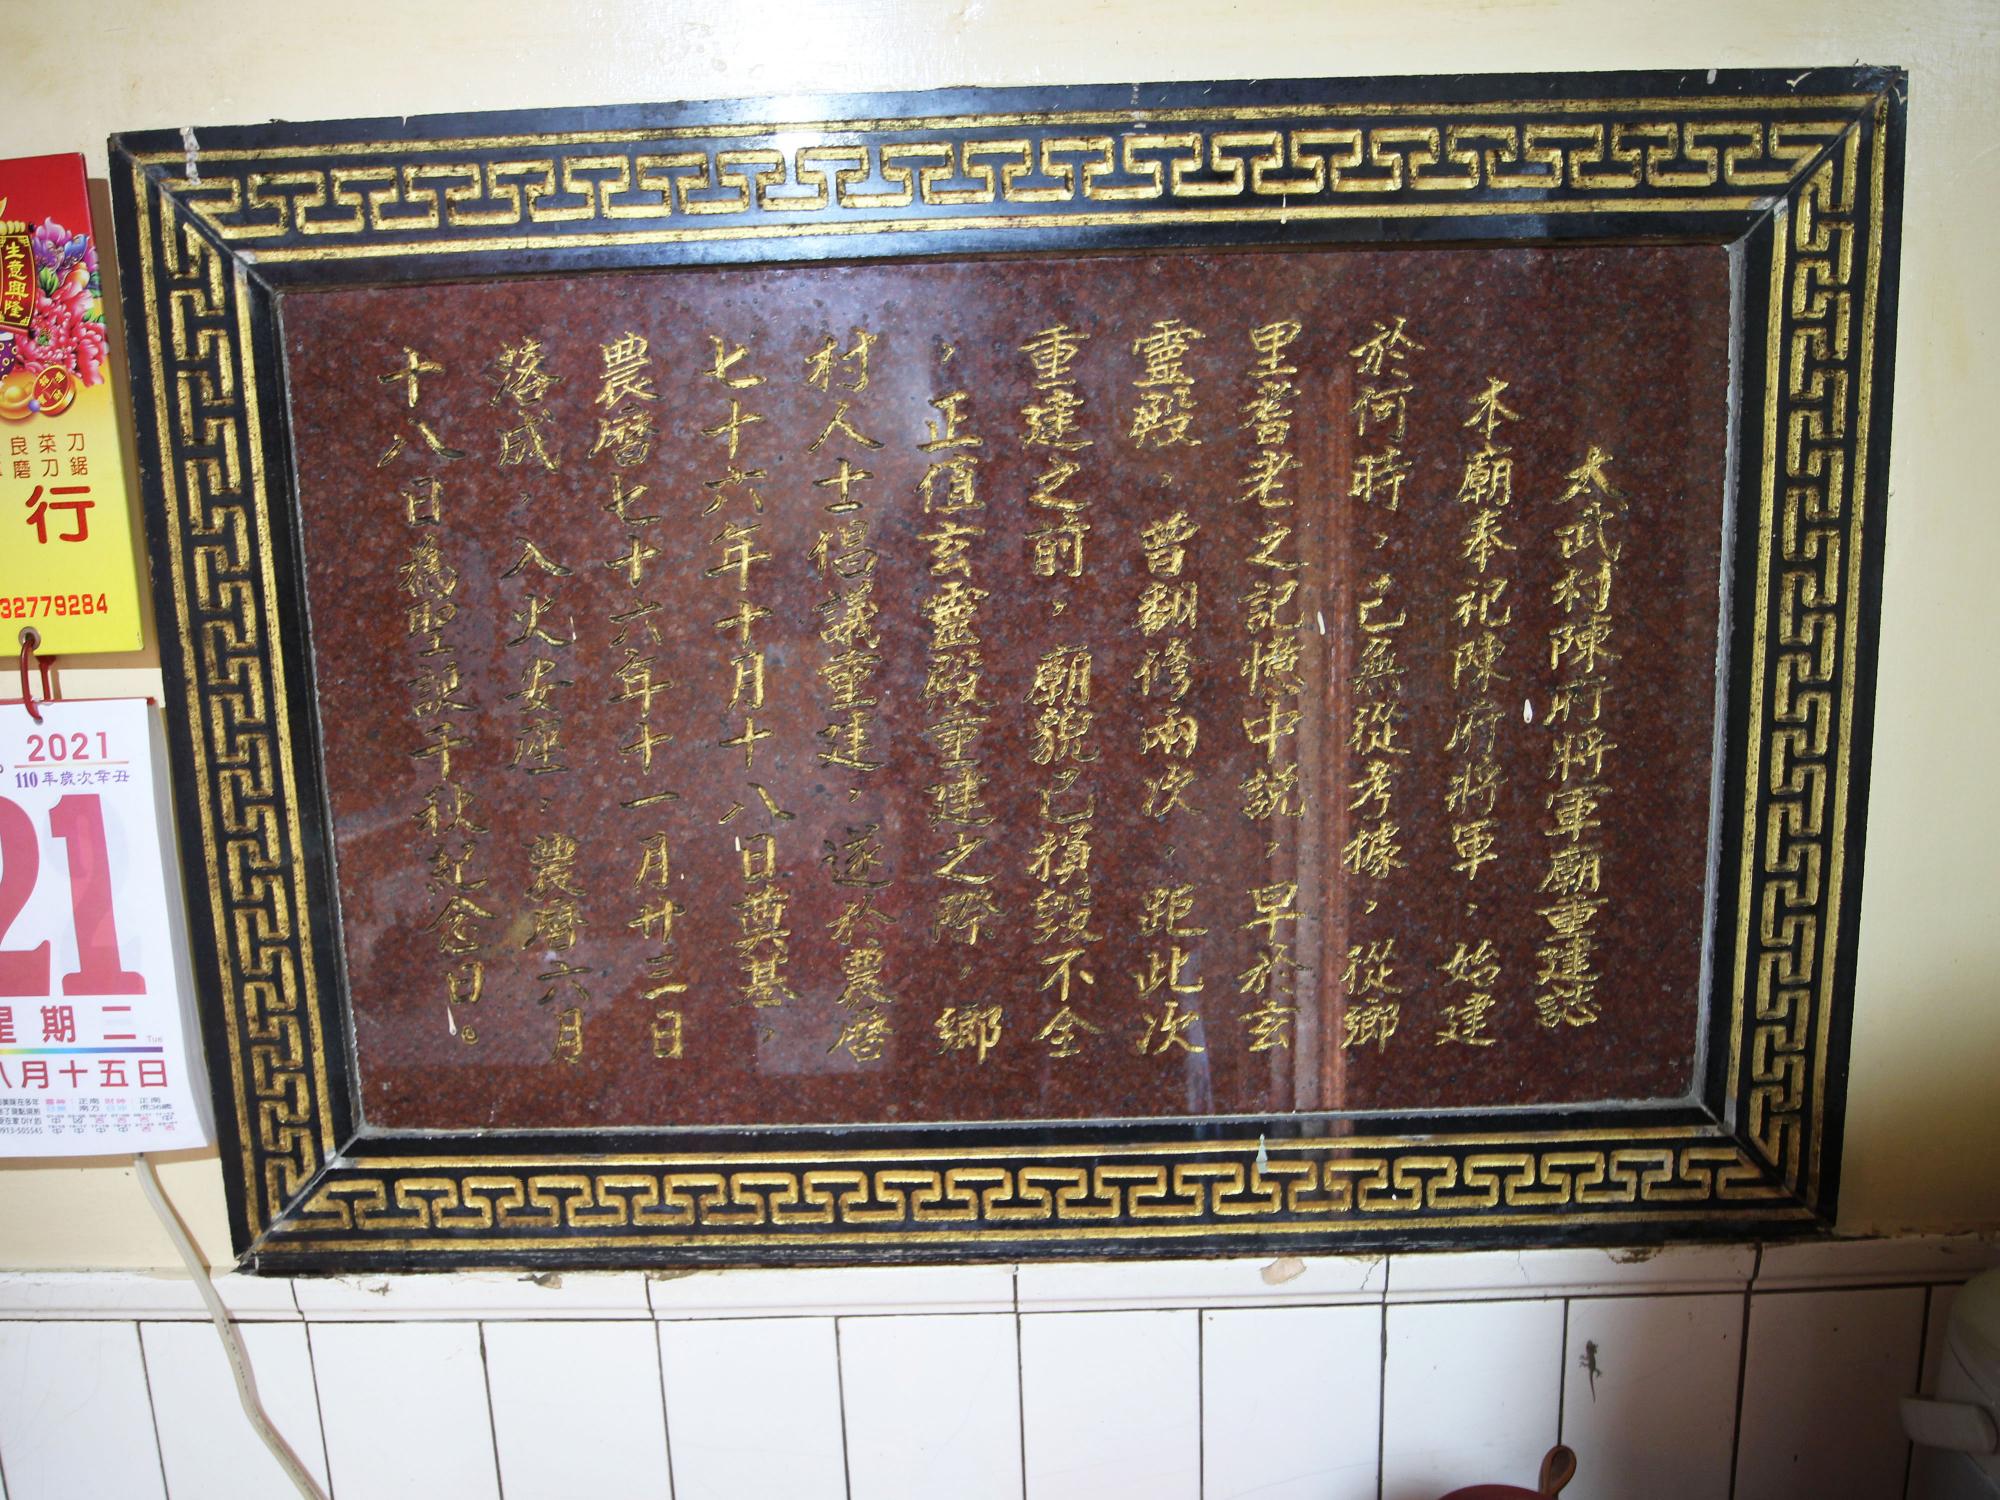 太武村陳府將軍廟重建誌
本廟奉祀陳府將軍，始建
於何時，已無從考據，從鄉
里耆老之記憶中説，早於玄
靈殿，曾翻修兩次，距此次
重建之前，廟貌已損毀不全
，正值玄靈殿重建之際，鄉
村人士倡議重建，遂於農曆
七十六年十月十八日奠基，
農曆七十六年十一月廿三日
落成，入火安座，農曆六月
十八日為聖誕千秋紀念日。
生意興隆
良菜刀
磨刀鋸
行
32779284
2021
110年歲次辛丑
21
星期二
Tue
八月十五日